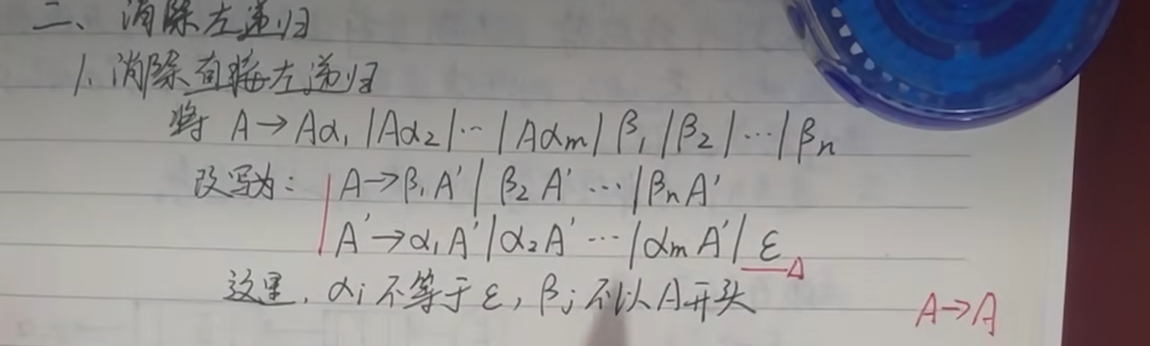 二、消除左递归
1. 消除直接左递归
将 A→Aα₁|Aα₂|…|Aαm|β₁|β₂|…|βn
改写为： A→β₁A'|β₂A'…|βnA'
A'→α₁A'|α₂A'…|αmA'|ε
这里，αi不等于ε，βj不以A开头
A→A